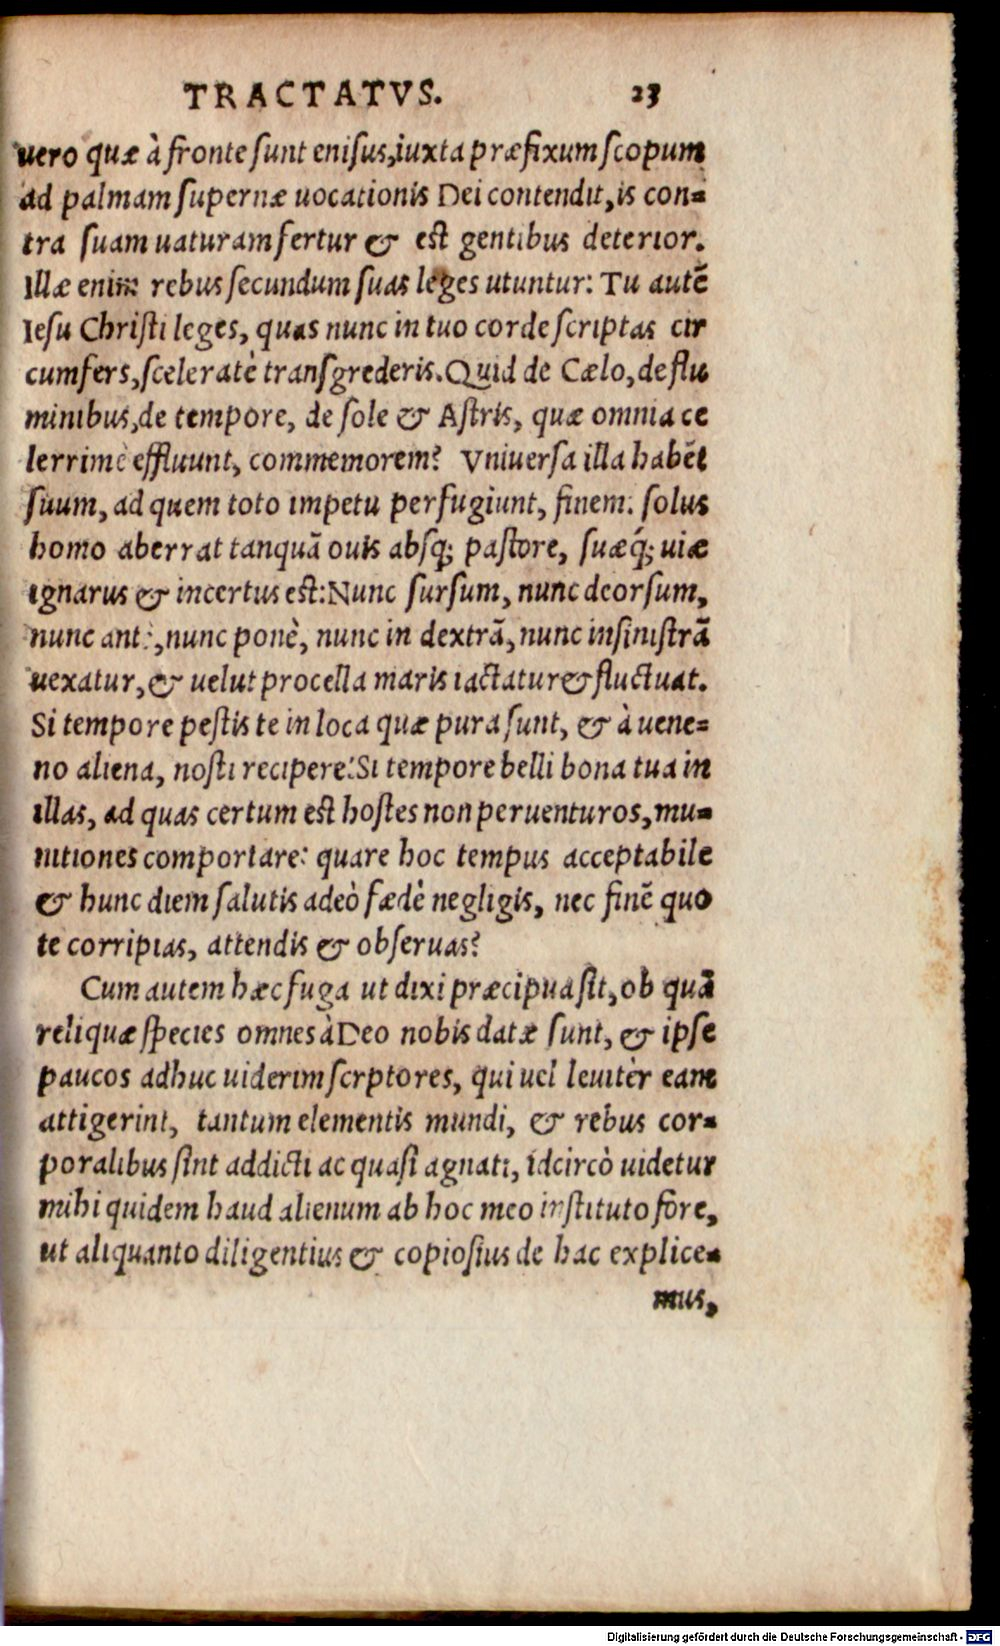 TRACTATVS. 23
uero quæ à fronte sunt enisus, iuxta præfixum scopum
ad palmam supernæ uocationis Dei contendit, is con-
tra suam uaturam fertur & est gentibus deterior.
Illæ enim rebus secundum suas leges utuntur: Tu autē
Iesu Christi leges, quas nunc in tuo corde scriptas cir
cumfers, sceleratè transgrederis. Quid de Cælo, de flu
minibus, de tempore, de sole & Astris, quæ omnia ce
lerrimè effluunt, commemorem? Vniuersa illa habēt
suum, ad quem toto impetu perfugiunt, finem: solus
homo aberrat tanquā ouis absq; pastore, suæq́; uiæ
ignarus & incertus est: Nunc sursum, nunc deorsum,
nunc antè, nunc ponè, nunc in dextrā, nunc in sinistrā
uexatur, & uelut procella maris iactatur & fluctuat.
Si tempore pestis te in loca quæ pura sunt, & à uene-
no aliena, nosti recipere: Si tempore belli bona tua in
illas, ad quas certum est hostes non peruenturos, mu-
nitiones comportare: quare hoc tempus acceptabile
& hunc diem salutis adeò fœdè negligis, nec finē quo
te corripias, attendis & obseruas?
Cum autem hæc fuga ut dixi præcipua sit, ob quā
reliquæ species omnes à Deo nobis datæ sunt, & ipse
paucos adhuc uiderim scrptores, qui uel leuitèr eam
attigerint, tantum elementis mundi, & rebus cor-
poralibus sint addicti ac quasi agnati, idcircò uidetur
mihi quidem haud alienum ab hoc meo instituto fore,
ut aliquanto diligentius & copiosius de hac explice-
mus,
Digitalisierung gefördert durch die Deutsche Forschungsgemeinschaft - DFG